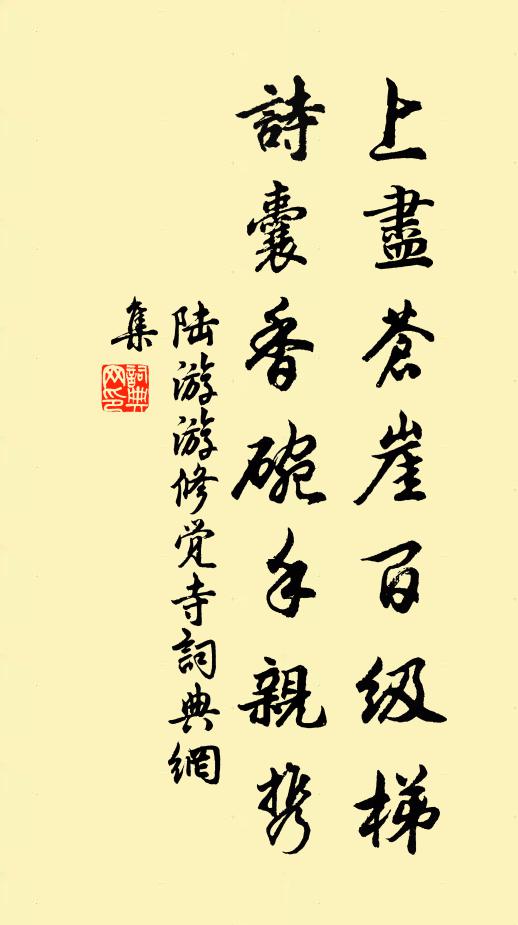 上盡蒼崖百级梯
詩囊香碗手親携
陆游游修觉寺詞典網
集
詞典
网印